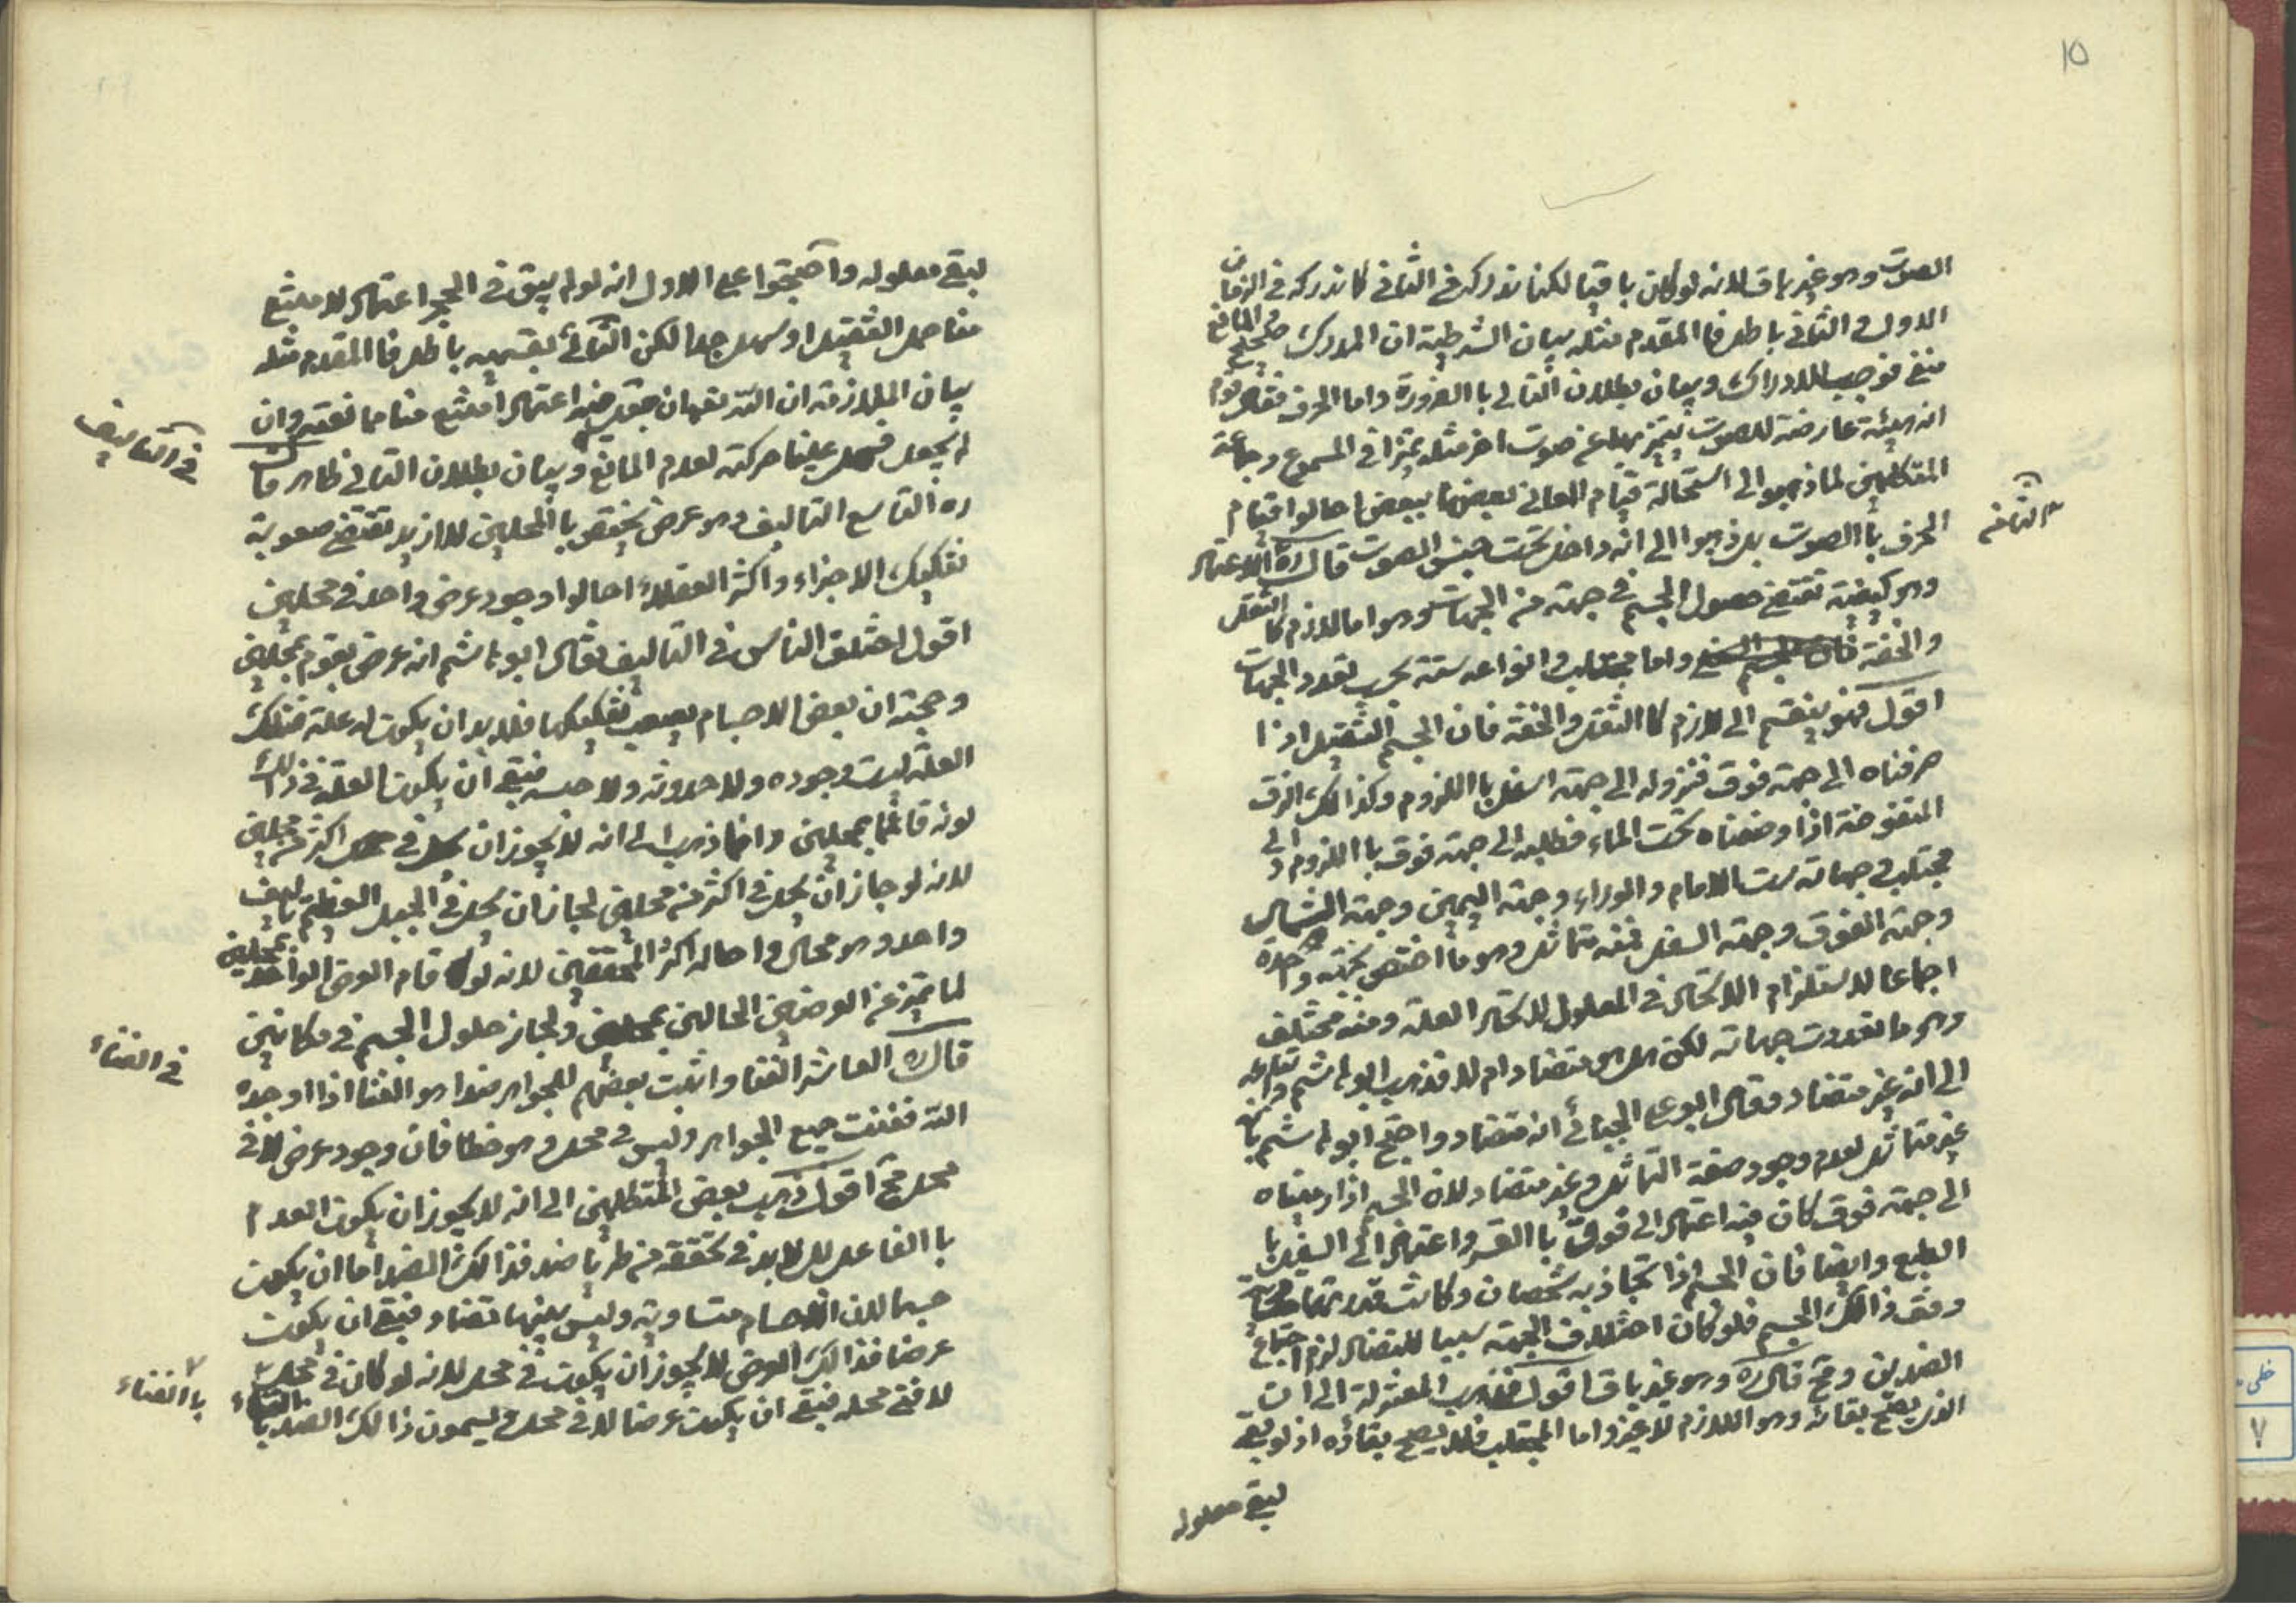 ١٥
الصوت وهو غير باق لانه لو كان باقيا لكنا ندركه في الثاني كما ندركه في الزمان
الاول والثاني باطل فا المقدم مثله بيان الشرطية ان المدرك صحيح والمانع
منفي فوجب الادراك وبيان بطلان التالي با الضرورة واما الحرف فقال قوم
انه هيئة عارضة للصوت يتميز بها عن صوت اخر مثله تميزا في المسموع وجماعة
المتكلمين لما ذهبوا الى استحالة قيام المعاني بعضها ببعض احالوا قيام
الحرف با الصوت بل ذهبوا الى انه داخل تحت جنس الصوت قال ره الثامن الاعتماد
وهو كيفية تقتضي حصول الجسم في جهة من الجهات وهو اما لازم كا الثقل
والخفة واما مجتلب وانواعه ستة بحسب تعدد الجهات
اقول فهو ينقسم الى لازم كا الثقل والخفة فان الجسم الثقيل اذا
صرفناه الى جهة فوق فنزوله الى جهة اسفل با اللزوم وكذا لك الزق
المنفوخة اذا وضعناه تحت الماء فطلبه الى جهة فوق با اللزوم والى
مجتلب وجهاته ست الامام والوراء وجهة اليمين وجهة الشمال
وجهة الفوق وجهة السفل فمنه متماثل وهو ما اختص بجهة واحدة
اجماعا لاستلزام الاتحاد في المعلول لاتحاد العلة ومنه مختلف
وهو ما تعددت جهاته لكن هل هو متضاد ام لا فذهب ابو هاشم
الى انه غير متضاد وقال ابو علي الجبائي انه متضاد واحتج ابو هاشم بانه
غير متماثل لعدم وجود صفة التماثل وغير متضاد لان الجسم اذا رميناه
الى جهة فوق كان فيه اعتماد الى فوق با القسر واعتماد الى السفل با
الطبع وايضا فان الجسم اذا تجاذبه شخصان وكانت قدرتهما
وقف ذا لك الجسم فلو كان اختلاف الجهة سببا للتضاد لزم اجتماع
الضدين وهو مح قال ره وهو غير باق اقول ذهب المعتزلة الى ان
الذي يصح بقائه وهو اللازم لا غير واما المجتلب فلا يصح بقاؤه اذ لو بقي
لبقي معلوله
لبقي معلوله واحتجوا على الاول انه لو لم يبق في الحجر اعتماد لامتنع
منا حمل الثقيل او سهل جدا لكن التالي بقسميه باطل فا المقدم مثله
بيان الملازمة ان الله تعالى ان جعل فيه اعتمادا امتنع منا ممانعته وان
لم يجعل سهل علينا حركته لعدم المانع وبيان بطلان التالي ظاهر قال
ره التاسع التاليف وهو عرض يختص با المحلين لا ازيد تقتضي صعوبة
تفكيك الاجزاء واكثر العقلاء احالوا وجود عرض واحد في محلين
اقول اختلف الناس في التاليف فقال ابو هاشم انه عرض يقوم بمحلين
وحجته ان بعض الاجسام يصعب تفكيكها فلا بد ان يكون له علة فتلك
العلة ليست وجوده ولا حدوثه ولا جنسه فبقي ان يكون العلة في ذا لك
كونه قائما بمحلين وانما ذهب الى انه لا يجوز ان يحل في اكثر من محلين
لانه لو جاز ان يحل في اكثر من محلين لجاز ان يحل في الجبل العظيم تاليف
واحد وهو محال واحاله اكثر المحققين لانه لو قام العرض الواحد بمحلين
لما تميز عن العرضين الحالين بمحلين ولجاز حلول الجسم في مكانين
قال ره العاشر الفنا واثبت بعضهم للجواهر ضدا هو الفنا اذا اوجده
الله ففنت جميع الجواهر وليس في محل وهو خطا فان وجود عرض لا في
محل مح اقول ذهب بعض المتكلمين الى انه لا يجوز ان يكون العدم
با الفاعل بل لا بد في تحققه من طريان ضد فذا لك الضد اما ان يكون
جسما لان الاجسام متساوية وليس بينها تضاد فبقي ان يكون
عرضا فذا لك العرض لا يجوز ان يكون في محل لانه لو كان في محل
لانتفى محله فبقي ان يكون عرضا لا في محل ويسمون ذا لك الضد با الفناء
في التاليف
في الفناء
با الفناء
٧